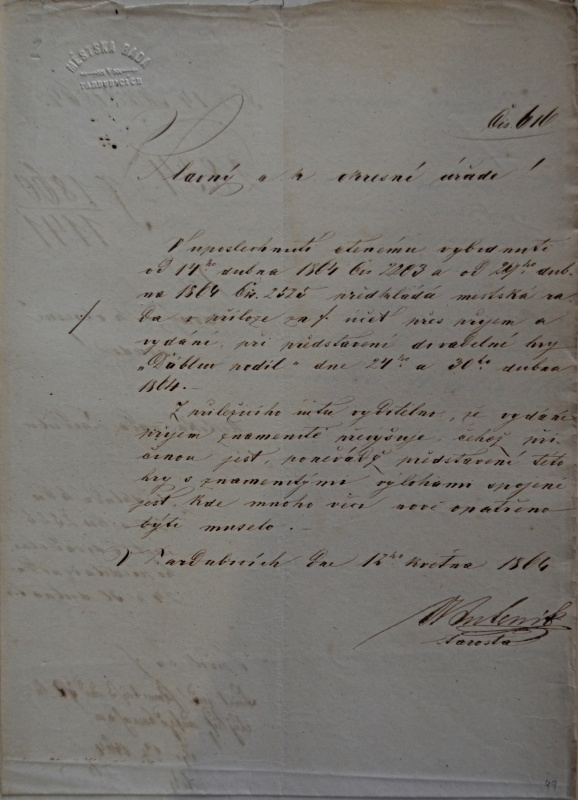 MĚSTSKÁ RADA
PARDUBICÍCH
Čís 616
Slavný c. k. okresní úřade!
V uposlechnutí ctěnému vybídnutí
od 14ho dubna 1864 čís 2203 a od 29ho dub-
na 1864 čís. 2525 předkládá městská ra-
da v příloze za /. účet přes příjem a
vydání, při představení divadelné hry
„Ďáblův podíl" dne 24ho a 30ho dubna
1864.—
Z příležícího účtu vyditelno, že vydání
příjem znamenitě převyšuje, čehož pří-
činou jest, poněvádž představení této
hry s znamenitými výlohami spojené
jest, kde mnoho věcí nově opatřeno
býti muselo.—
V Pardubicích dne 12ho května 1864
starosta